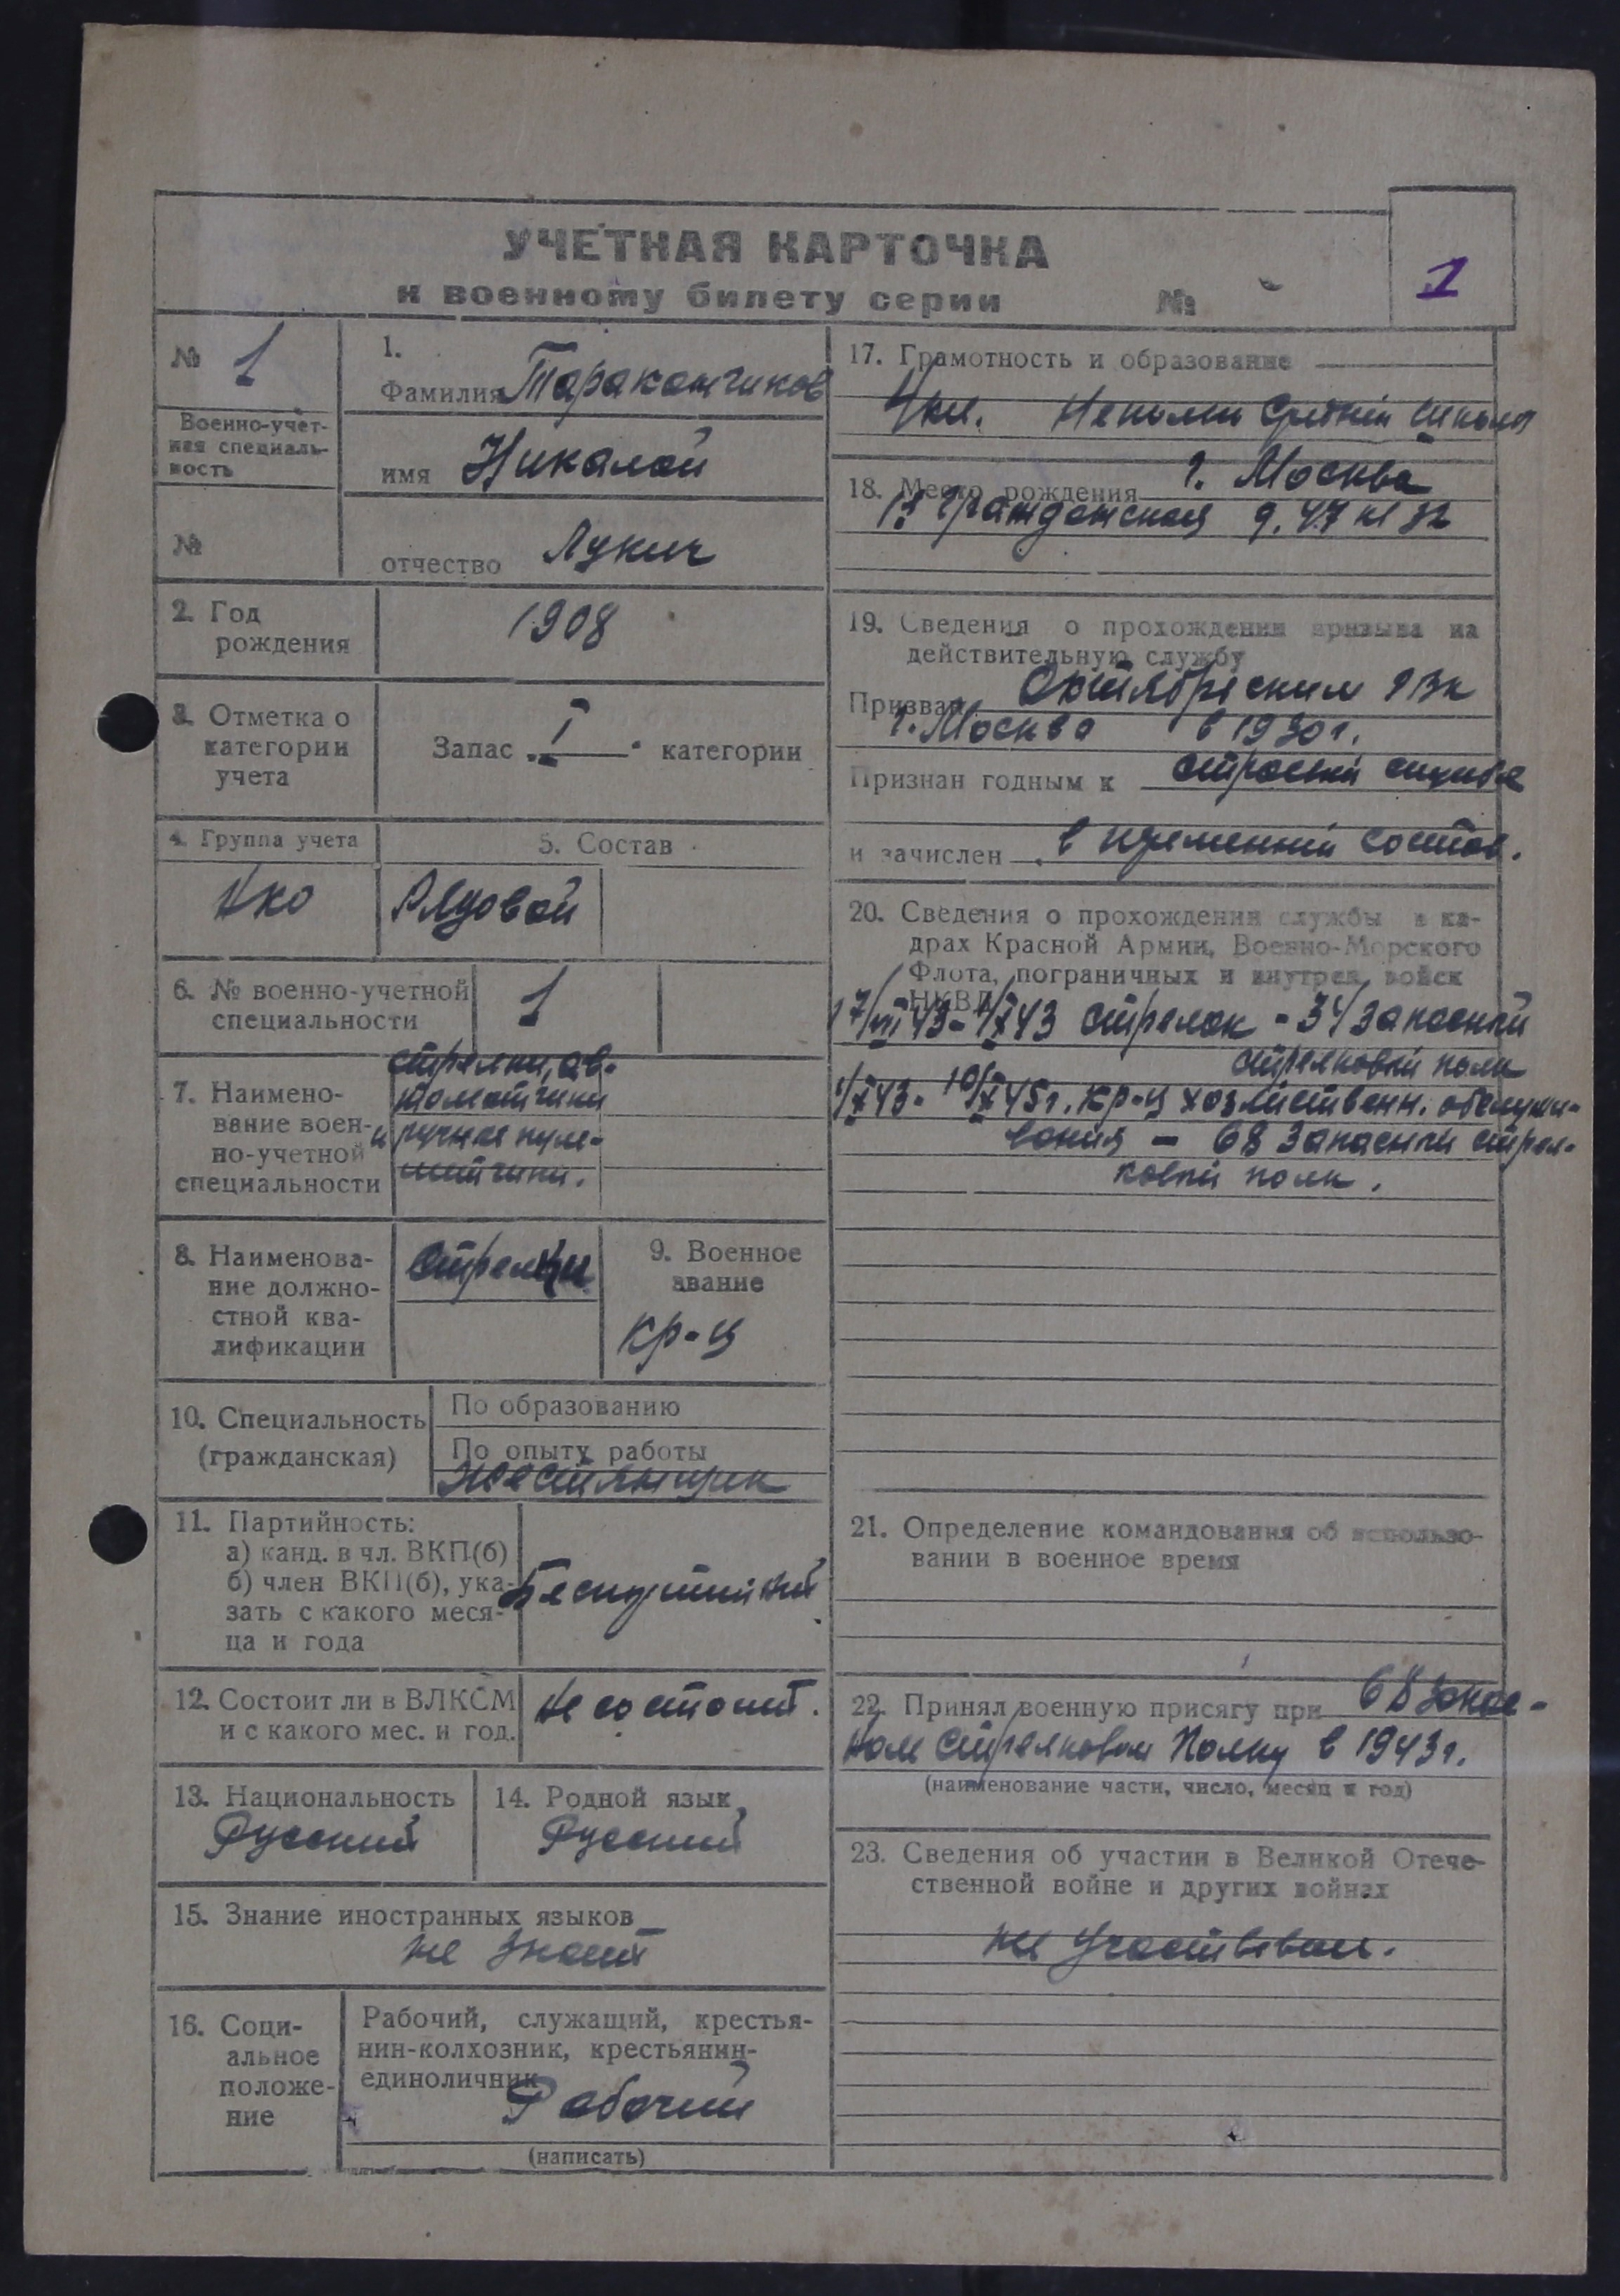 УЧЕТНАЯ КАРТОЧКА
к военному билету серии №
1
№ 1
Военно-учет-
ная специаль-
ность
№
1.
Фамилия Тараканчиков
имя Николай
отчество Лукич
2. Год
рождения
1908
3. Отметка о
категории
учета
Запас I категории
4. Группа учета
РКО
5. Состав
Рядовой
6. № военно-учетной
специальности
1
7. Наимено-
вание воен-
но-учетной
специальности
стрелки, ав-
томатчики
и ручные пуле-
метчики.
8. Наименова-
ние должно-
стной ква-
лификации
Стрелки
9. Военное
звание
кр-ц
10. Специальность
(гражданская)
По образованию
По опыту работы
Жестянщик
11. Партийность:
а) канд. в чл. ВКП(б)
б) член ВКП(б), ука-
зать с какого меся-
ца и года
Беспартийный
12. Состоит ли в ВЛКСМ
и с какого мес. и год.
Не состоит.
13. Национальность
Русский
14. Родной язык
Русский
15. Знание иностранных языков
не знает
16. Соци-
альное
положе-
ние
Рабочий, служащий, крестья-
нин-колхозник, крестьянин-
единоличник
Рабочий
(написать)
17. Грамотность и образование
4 кл. Неполн средний школы
18. Место рождения г. Москва
Гражданская д. 47 кв 32
19. Сведения о прохождении призыва на
действительную службу
Призван Октябрьским РВК
г. Москва в 1930 г.
Признан годным к строевой службе
и зачислен в переменный состав.
20. Сведения о прохождении службы в ка-
драх Красной Армии, Военно-Морского
Флота, пограничных и внутрен. войск
НКВД
17/VII 43 - 1/X 43 стрелок - 34 запасный
стрелковый полк
1/X 43 - 10/X 45 г. кр-ц хозяйственн. обслужи-
вания - 68 запасный стрел-
ковый полк.
21. Определение командования об использо-
вании в военное время
22. Принял военную присягу при 68 запас-
ном стрелковом полку в 1943 г.
(наименование части, число, месяц и год)
23. Сведения об участии в Великой Отече-
ственной войне и других войнах
не участвовал.